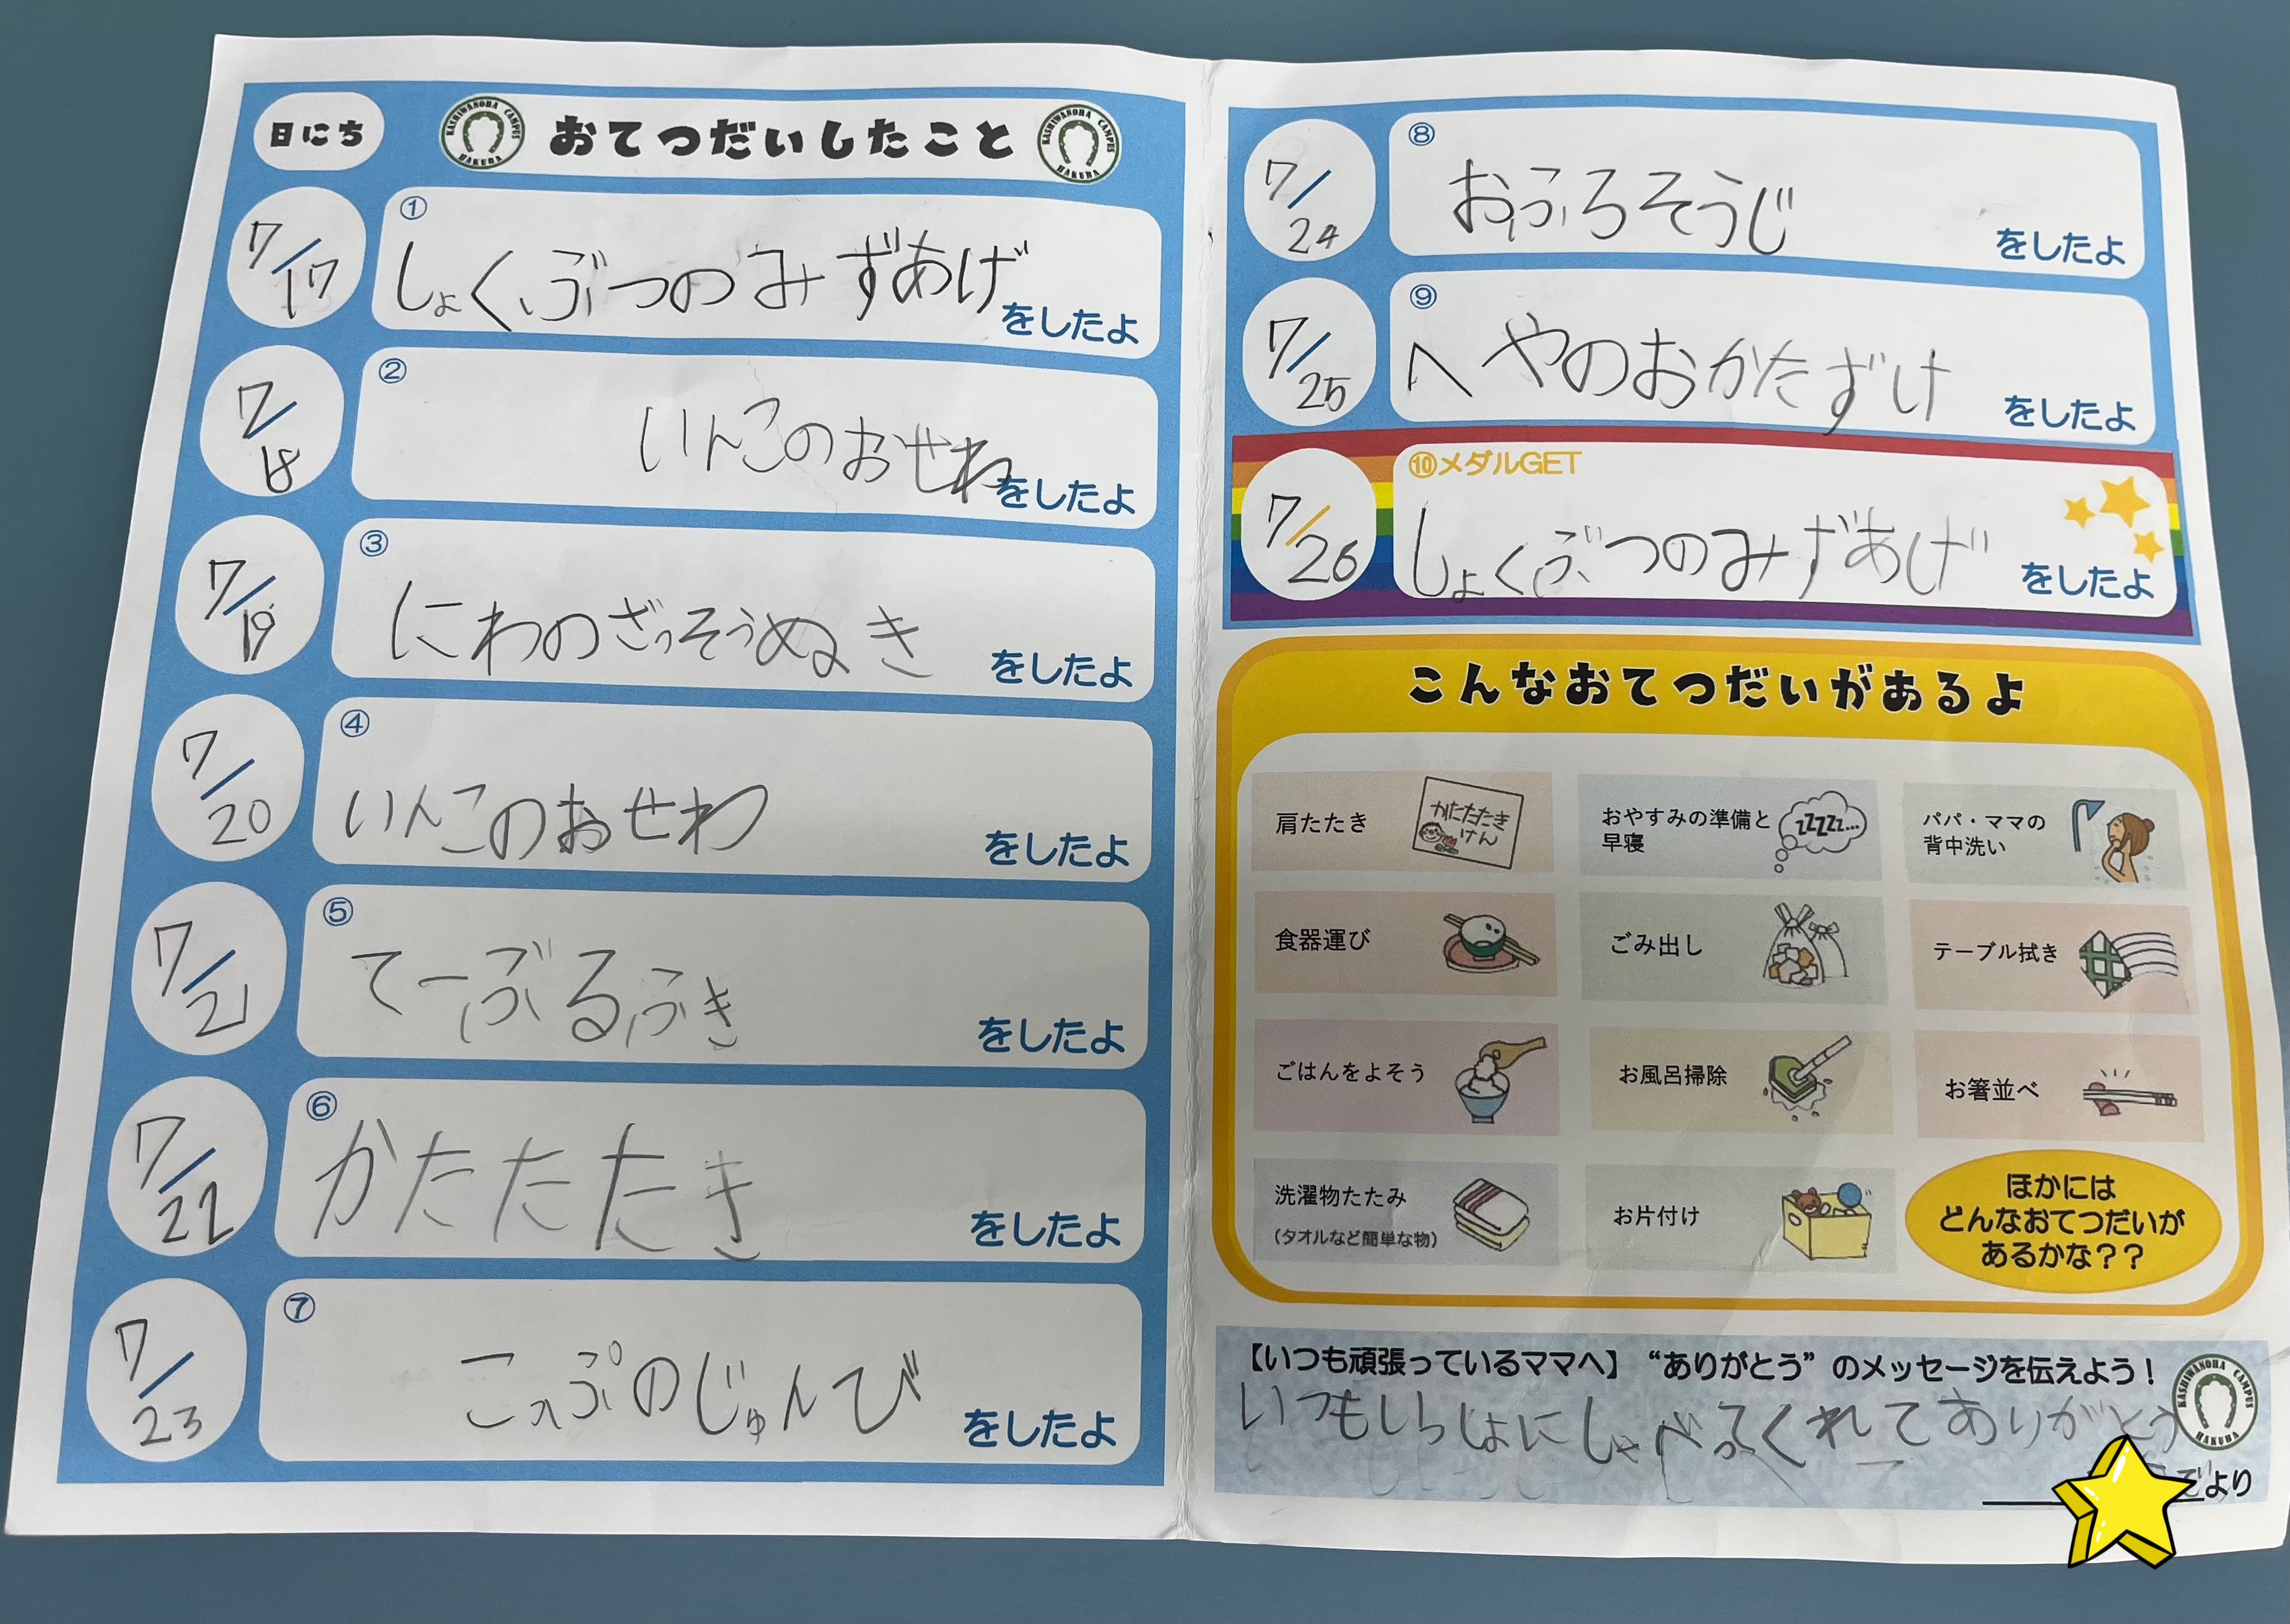 日にち
おてつだいしたこと
KASHIWANOHA CAMPUS
HAKUBA
KASHIWANOHA CAMPUS
HAKUBA
7/17
①
しょくぶつのみずあげ
をしたよ
7/18
②
いんこのおせわ
をしたよ
7/19
③
にわのざっそうぬき
をしたよ
7/20
④
いんこのおせわ
をしたよ
7/21
⑤
てーぶるふき
をしたよ
7/22
⑥
かたたたき
をしたよ
7/23
⑦
こっぷのじゅんび
をしたよ
7/24
⑧
おふろそうじ
をしたよ
7/25
⑨
へやのおかたずけ
をしたよ
7/26
⑩メダルGET
しょくぶつのみずあげ
をしたよ
こんなおてつだいがあるよ
肩たたき
かたたたき
けん
おやすみの準備と
早寝
zZZZZ...
パパ・ママの
背中洗い
食器運び
ごみ出し
テーブル拭き
ごはんをよそう
お風呂掃除
お箸並べ
洗濯物たたみ
(タオルなど簡単な物)
お片付け
ほかには
どんなおてつだいが
あるかな??
【いつも頑張っているママへ】 “ありがとう” のメッセージを伝えよう!
いつもいっしょにしゃべってくれてありがとう
KASHIWANOHA CAMPUS
HAKUBA
より